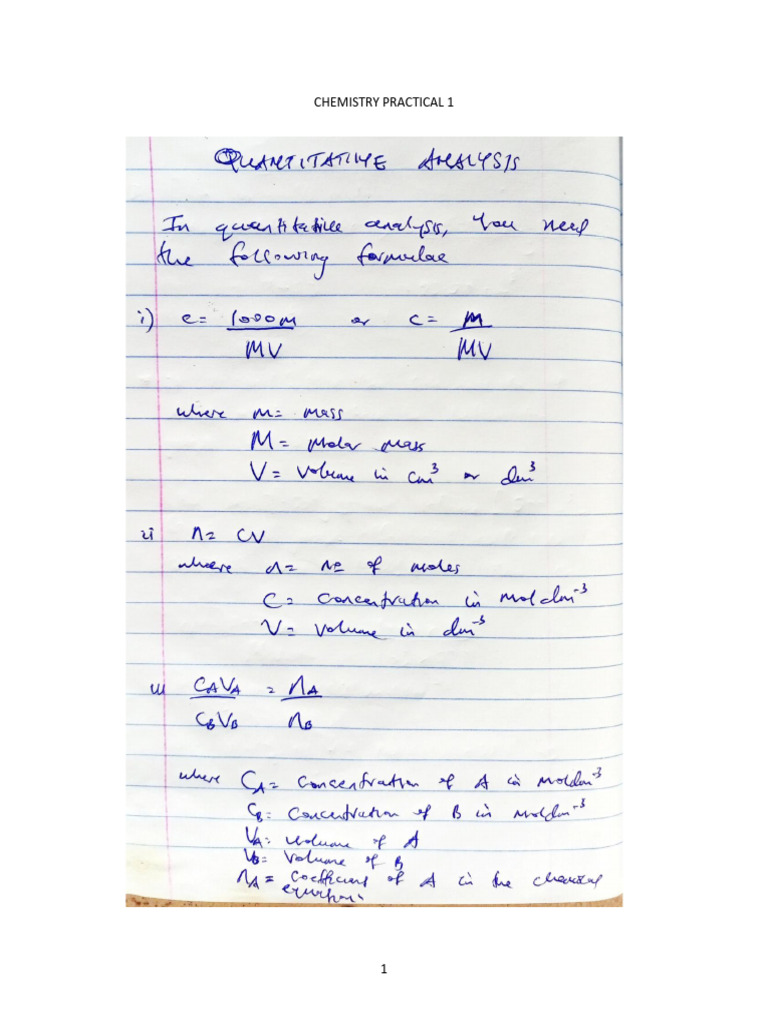 CHEMISTRY PRACTICAL 1
QUANTITATIVE ANALYSIS
In quantitative analysis, You need
the following formulae
i) c = 1000m / MV or c = m / MV
where m = mass
M = Molar mass
V = Volume in cm³ or dm³
ii n = CV
where n = № of moles
C = Concentration in moldm⁻³
V = Volume in dm⁻³
iii CAVA / CBVB = nA / nB
where CA = Concentration of A in moldm⁻³
CB = Concentration of B in moldm⁻³
VA = volume of A
VB = Volume of B
nA = coefficient of A in the chemical
equation.
1